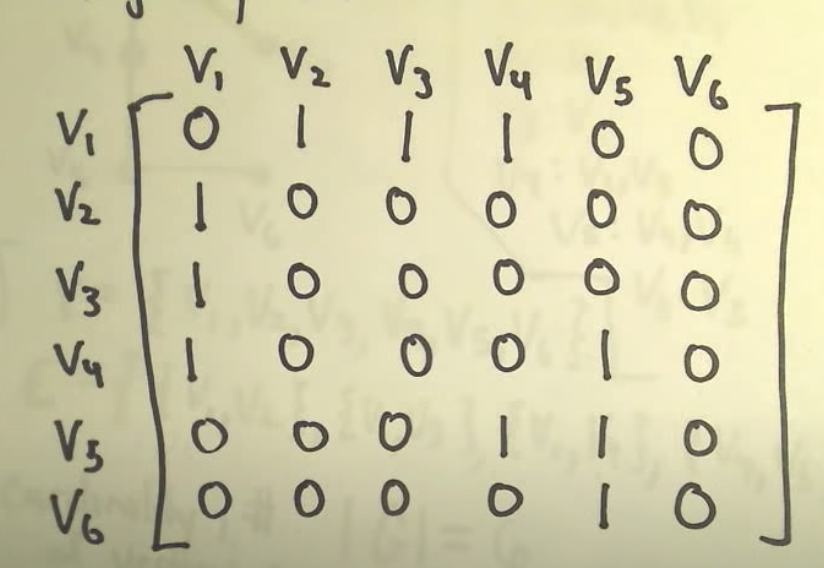 V1 V2 V3 V4 V5 V6
V1 0 1 1 1 0 0
V2 1 0 0 0 0 0
V3 1 0 0 0 0 0
V4 1 0 0 0 1 0
V5 0 0 0 1 1 0
V6 0 0 0 0 1 0